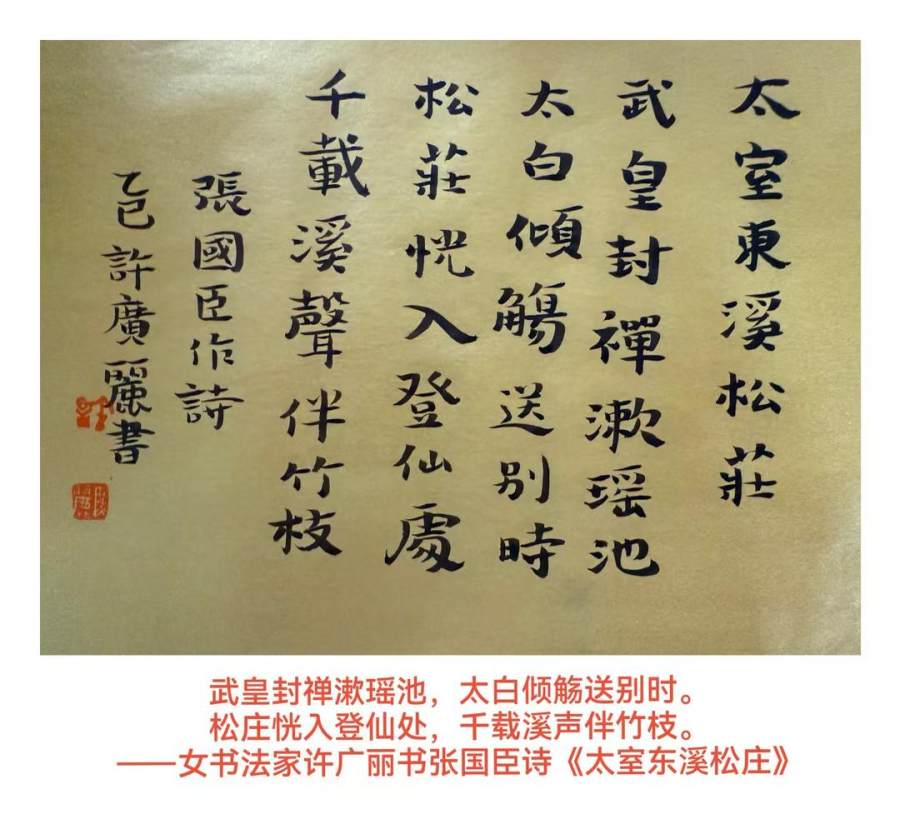 太室東溪松莊
武皇封禪漱瑶池
太白傾觴送别時
松莊恍入登仙處
千載溪聲伴竹枝
張國臣作詩
乙巳許廣麗書
武皇封禅漱瑶池，太白倾觞送别时。
松庄恍入登仙处，千载溪声伴竹枝。
——女书法家许广丽书张国臣诗《太室东溪松庄》